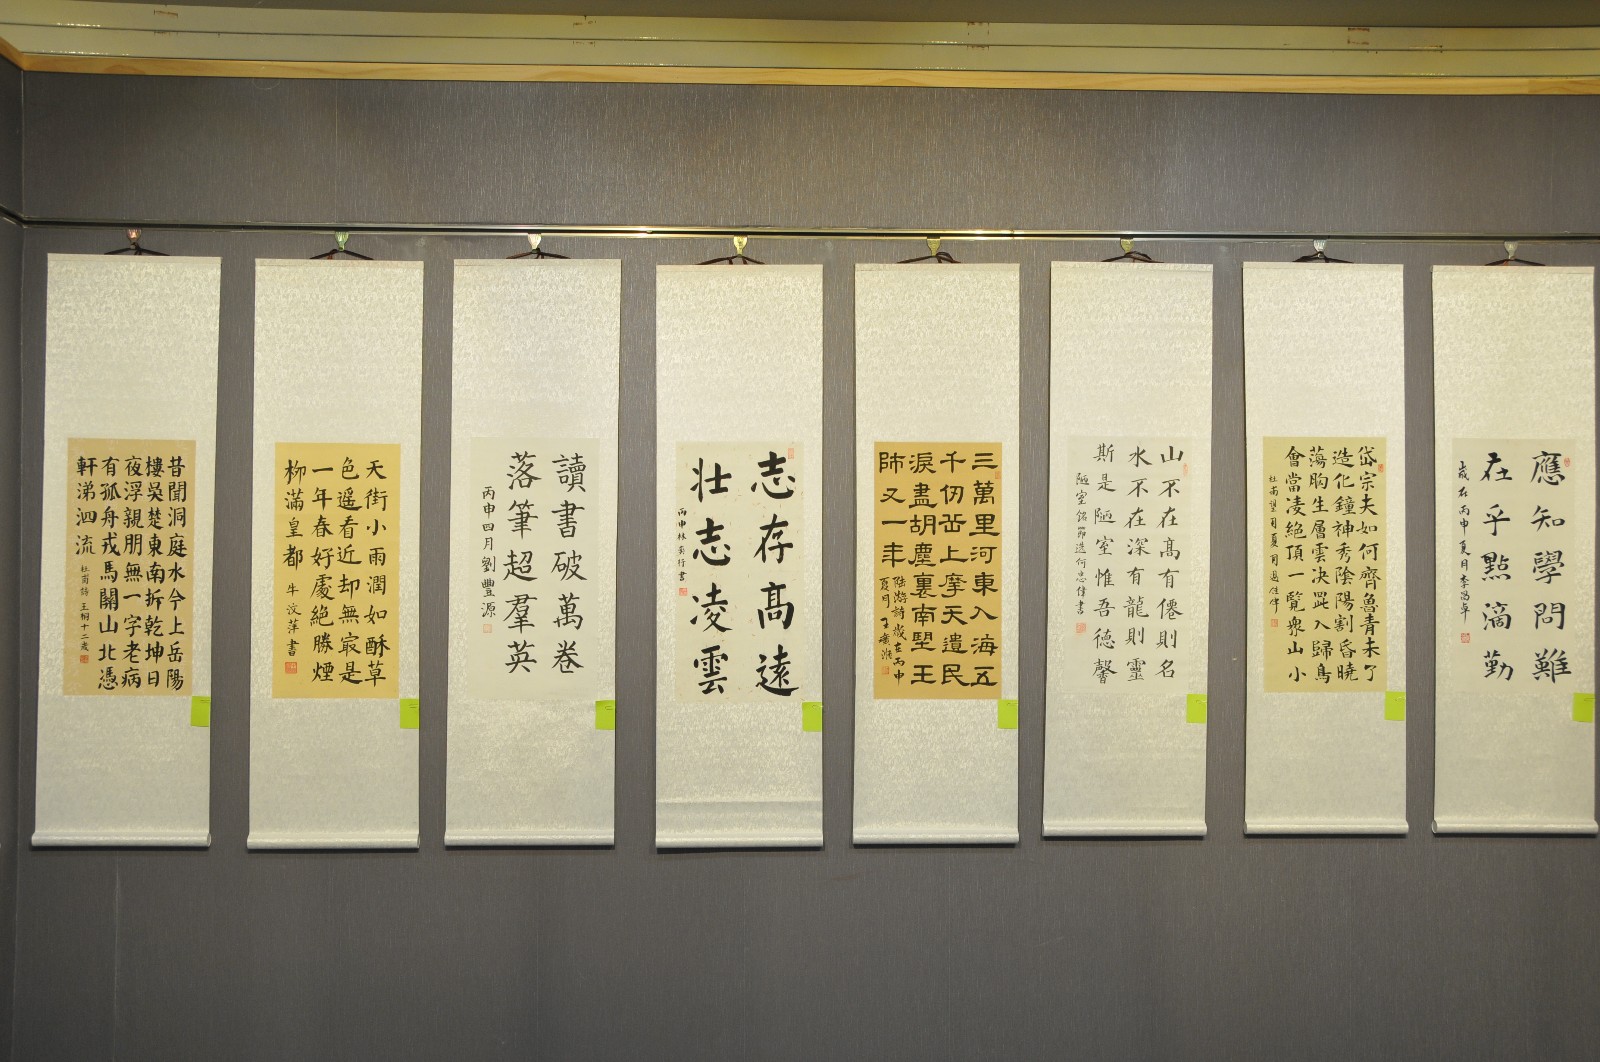 昔聞洞庭水今上岳陽
樓吳楚東南拆乾坤日
夜浮親朋無一字老病
有孤舟戎馬關山北憑
軒涕泗流
杜甫詩 王桐十二歲
天街小雨潤如酥草
色遥看近却無最是
一年春好處絕勝煙
柳滿皇都
牛汶萍書
讀書破萬卷
落筆超羣英
丙申四月劉豐源
志存高遠
壮志凌雲
丙申林奕行書
三萬里河東入海五
千仞岳上摩天遺民
淚盡胡塵裏南望王
師又一年
陸游詩歲在丙申
夏月王
山不在高有僊則名
水不在深有龍則靈
斯是陋室惟吾德馨
陋室銘節選何忠偉書
岱宗夫如何齊魯青未了
造化鐘神秀陰陽割昏曉
蕩胸生層雲决眥入歸鳥
會當凌絕頂一覽衆山小
杜甫望月夏月
應知學問難
在乎點滴勤
歲在丙申夏月李昌卓